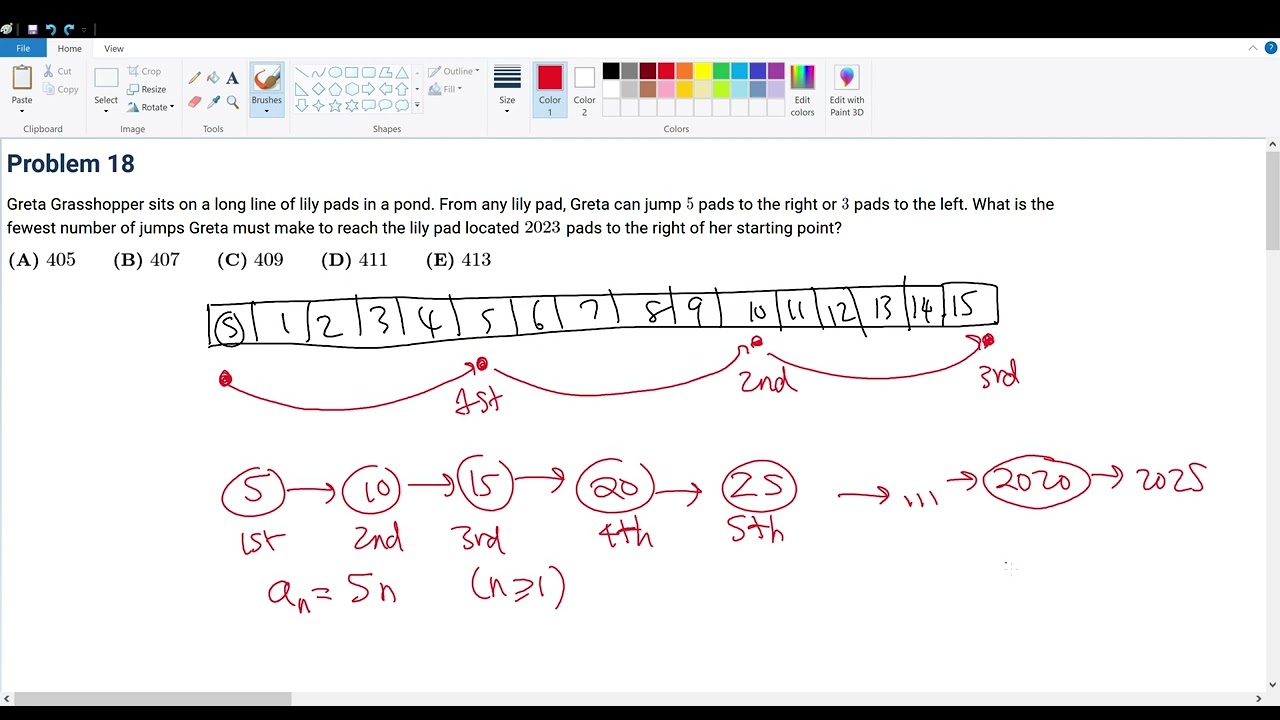 File Home View
Paste Cut Copy Select Crop Resize Rotate A Brushes Outline Fill Size Color 1 Color 2 Edit colors Edit with Paint 3D
Clipboard Image Tools Shapes Colors
Problem 18
Greta Grasshopper sits on a long line of lily pads in a pond. From any lily pad, Greta can jump 5 pads to the right or 3 pads to the left. What is the
fewest number of jumps Greta must make to reach the lily pad located 2023 pads to the right of her starting point?
(A) 405 (B) 407 (C) 409 (D) 411 (E) 413
S 1 2 3 4 5 6 7 8 9 10 11 12 13 14 15
1st 2nd 3rd
5 → 10 → 15 → 20 → 25 → ... → 2020 → 2025
1st 2nd 3rd 4th 5th
aₙ = 5n (n ≥ 1)